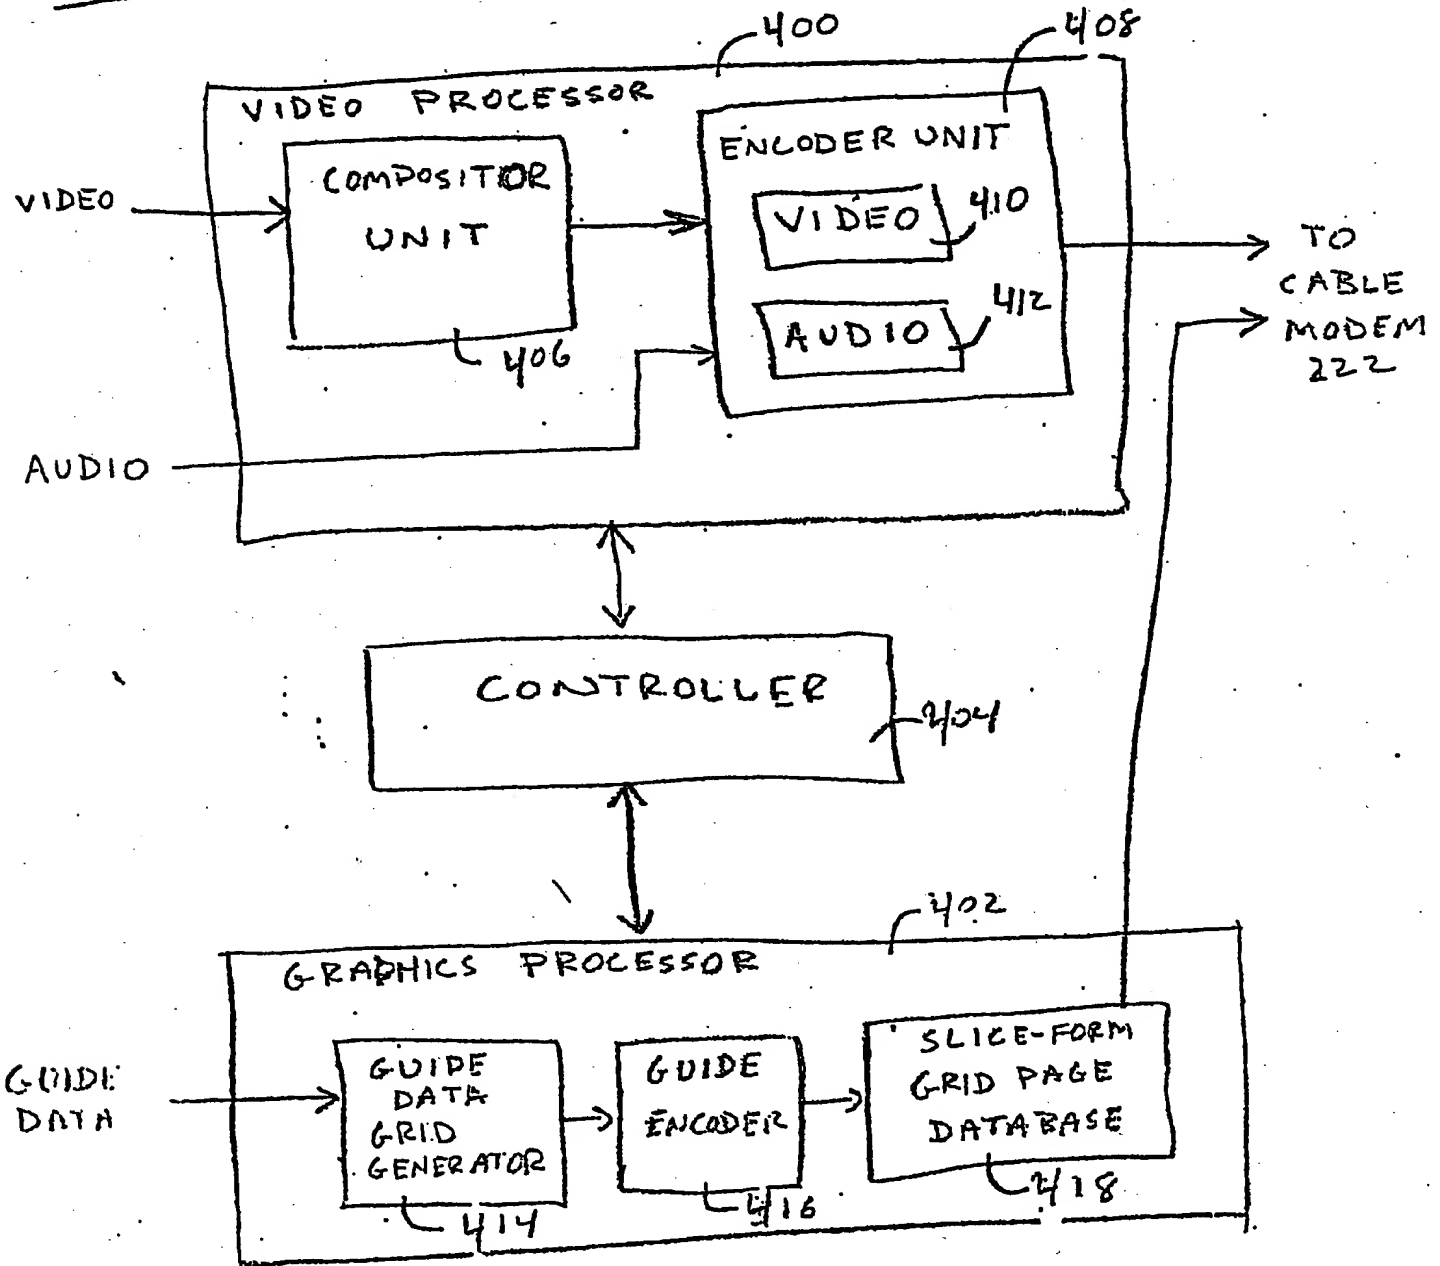 400
408
VIDEO PROCESSOR
ENCODER UNIT
COMPOSITOR
UNIT
VIDEO
VIDEO
410
TO
CABLE
MODEM
222
AUDIO
412
406
AUDIO
CONTROLLER
404
402
GRAPHICS PROCESSOR
GUIDE
DATA
GUIDE
DATA
GRID
GENERATOR
414
GUIDE
ENCODER
416
SLICE-FORM
GRID PAGE
DATABASE
418